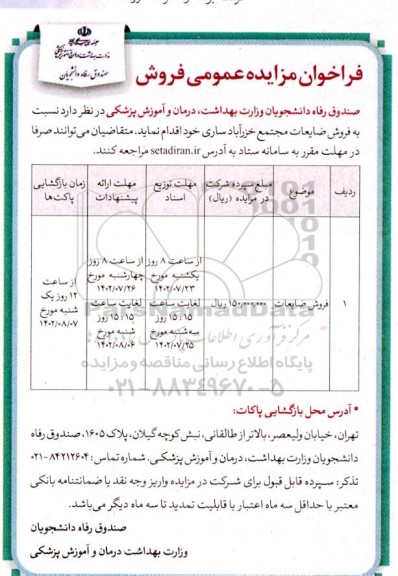 جمهوری اسلامی ایران
وزارت بهداشت، درمان و آموزش پزشکی
صندوق رفاه دانشجویان
فراخوان مزایده عمومی فروش
صندوق رفاه دانشجویان وزارت بهداشت، درمان و آموزش پزشکی در نظر دارد نسبت
به فروش ضایعات مجتمع خزرآباد ساری خود اقدام نماید. متقاضیان می‌توانند صرفا
در مهلت مقرر به سامانه ستاد به آدرس setadiran.ir مراجعه کنند.
ردیف
موضوع
مبلغ سپرده شرکت در مزایده (ریال)
مهلت توزیع اسناد
مهلت ارائه پیشنهادات
زمان بازگشایی پاکت‌ها
۱
فروش ضایعات
۱۵۰،۰۰۰،۰۰۰ ریال
از ساعت ۸ روز
یکشنبه مورخ
۱۴۰۲/۰۷/۲۳
لغایت ساعت
۱۵:۱۵ روز
سه شنبه مورخ
۱۴۰۲/۰۷/۲۵
از ساعت ۸ روز
چهارشنبه مورخ
۱۴۰۲/۰۷/۲۶
لغایت ساعت
۱۵:۱۵ روز
شنبه مورخ
۱۴۰۲/۰۸/۰۶
از ساعت
۱۲ روز یک
شنبه مورخ
۱۴۰۲/۰۸/۰۷
ParsNamadData
پایگاه اطلاع رسانی مناقصه و مزایده
۰۲۱-۸۸۳۴۹۶۷۰-۵
* آدرس محل بازگشایی پاکات:
تهران، خیابان ولیعصر، بالاتر از طالقانی، نبش کوچه گیلان، پلاک ۱۶۰۵، صندوق رفاه
دانشجویان وزارت بهداشت، درمان و آموزش پزشکی. شماره تماس: ۸۴۲۱۲۶۰۴-۰۲۱
تذکر: سپرده قابل قبول برای شرکت در مزایده واریز وجه نقد یا ضمانتنامه بانکی
معتبر با حداقل سه ماه اعتبار با قابلیت تمدید تا سه ماه دیگر می‌باشد.
صندوق رفاه دانشجویان
وزارت بهداشت درمان و آموزش پزشکی